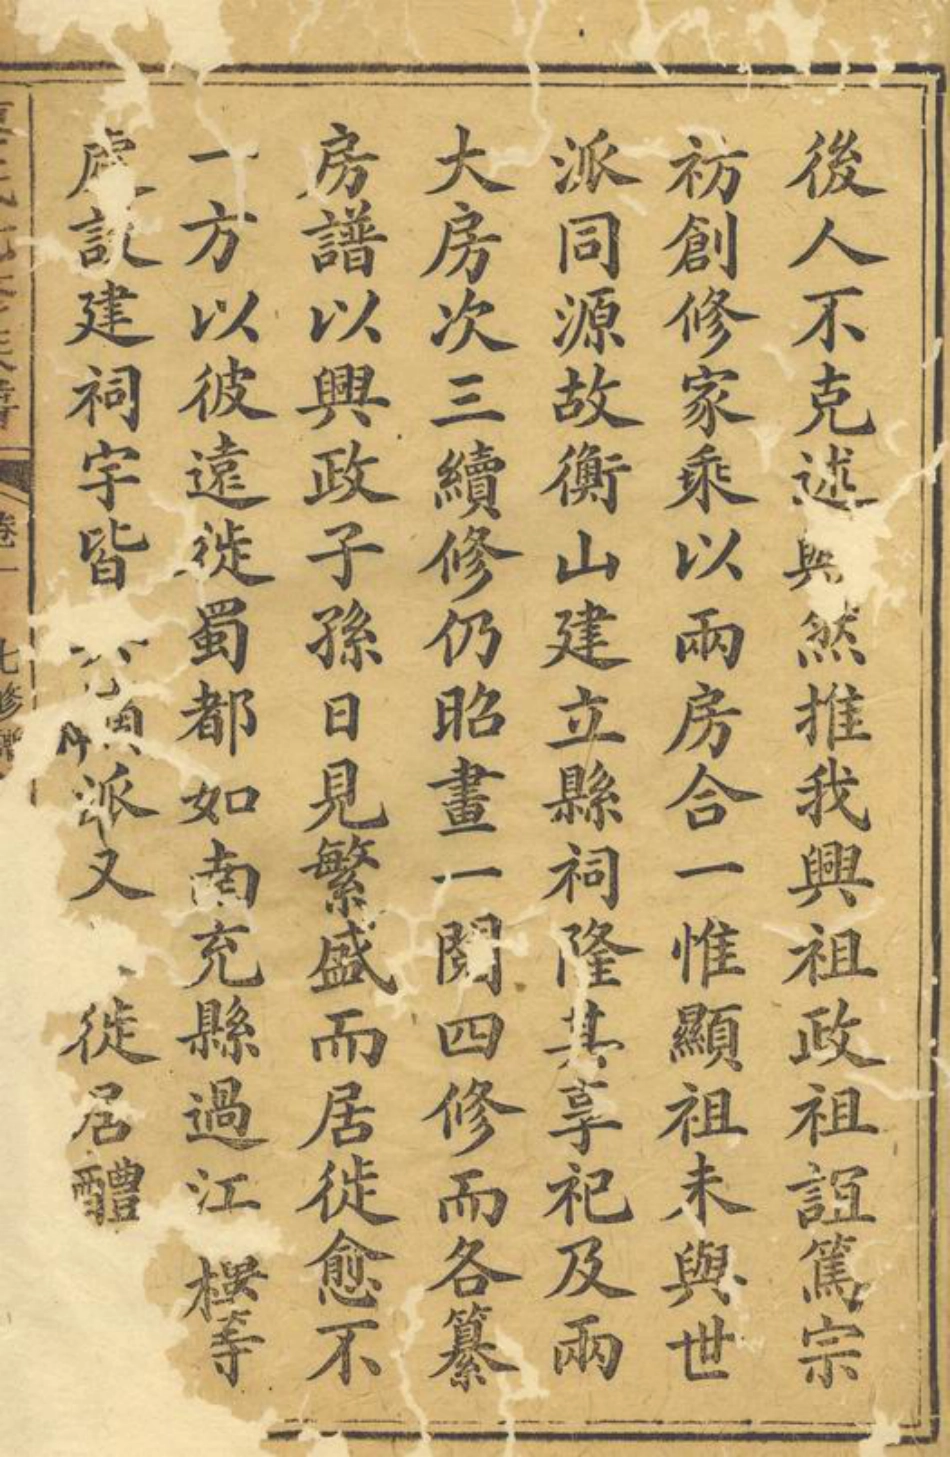 後人不克述興然推我興祖政祖誼篤宗
祊創修家乘以兩房合一惟顯祖未與世
派同源故衡山建立縣祠隆其享祀及兩
大房次三續修仍昭畫一閱四修而各纂
房譜以興政子孫日見繁盛而居徙愈不
一方以彼遠徙蜀都如南充縣過江 等
處設建祠宇皆 派又 徙居醴
卷一 七修